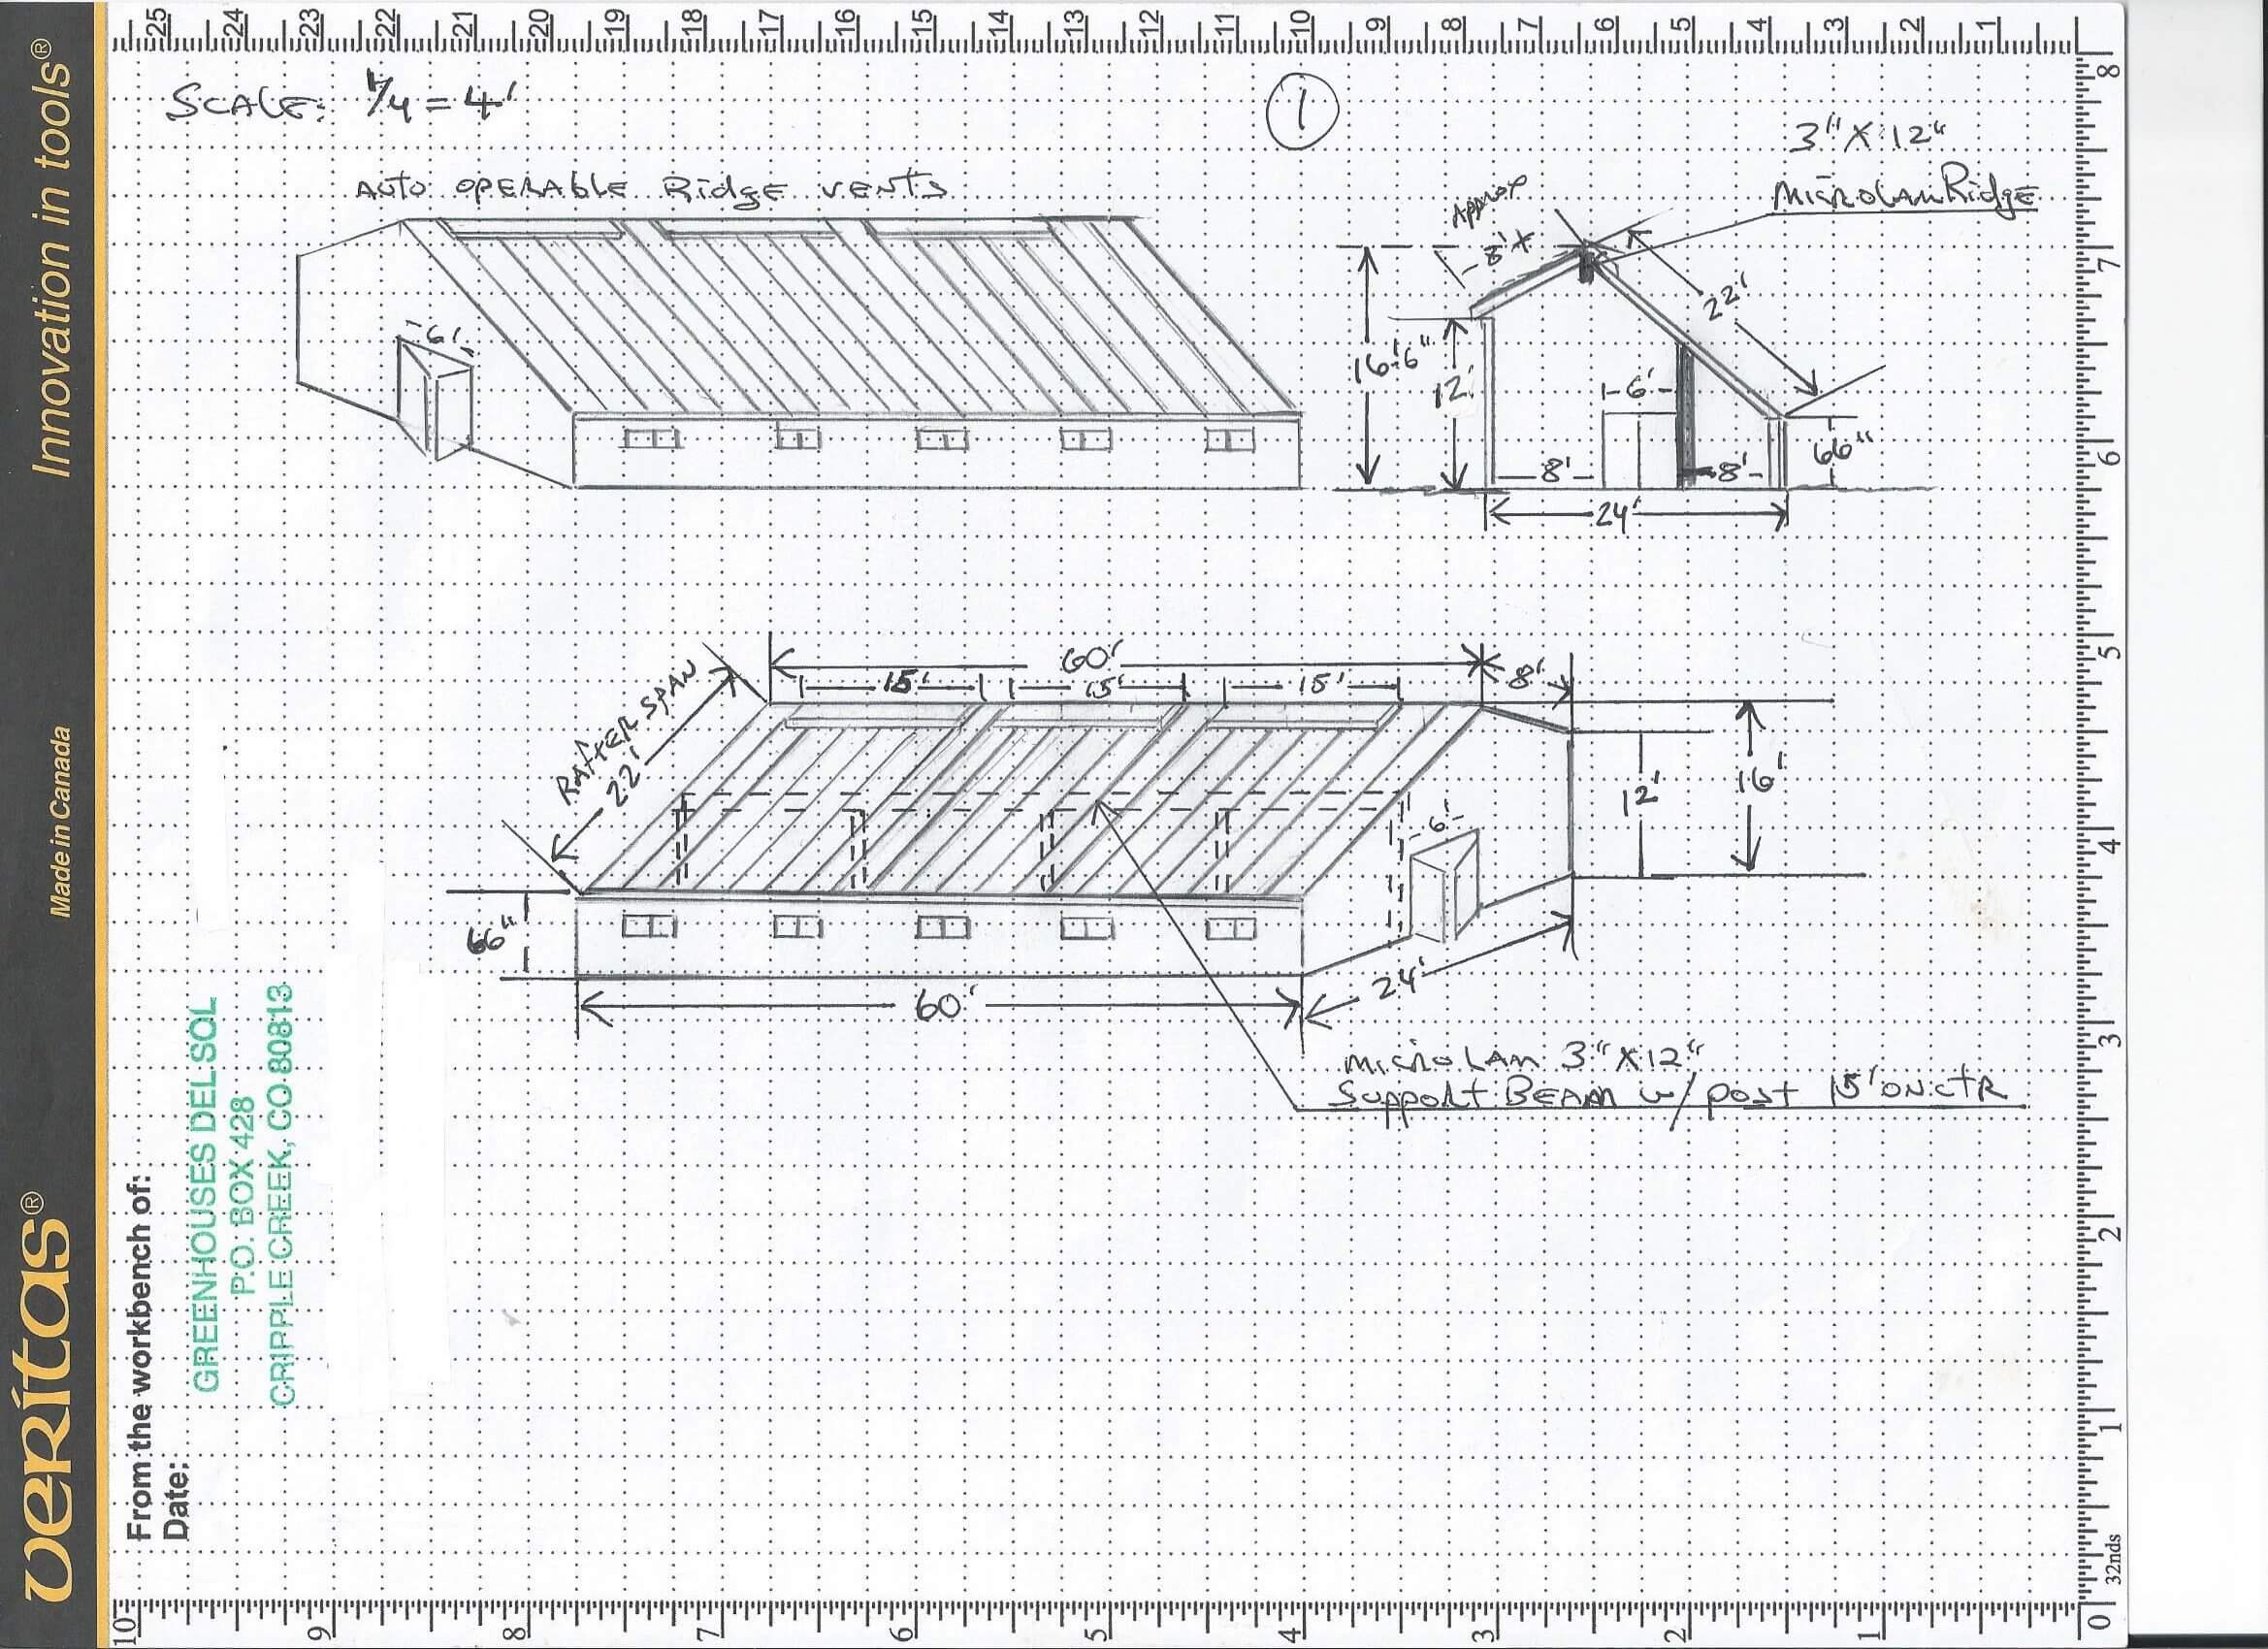 veritas®
Made in Canada
Innovation in tools®
From the workbench of:
Date:
GREENHOUSES DEL SOL
P.O. BOX 428
CRIPPLE CREEK, CO 80813
25 24 23 22 21 20 19 18 17 16 15 14 13 12 11 10 9 8 7 6 5 4 3 2 1
SCALE: 1/4 = 4'
1
AUTO OPERABLE Ridge VENTS
6'
3" X 12"
MICROLAM Ridge
Approx
8'±
22'
16'6"
12'
6'
66"
8'
8'
24'
60'
8'
15'
15'
15'
RAFTER SPAN
22'
12'
16'
6'
66"
24'
60'
MICROLAM 3" X 12"
SUPPORT BEAM w/ post 15' ON CTR
8
7
6
5
4
3
2
1
0
32nds
10 9 8 7 6 5 4 3 2 1